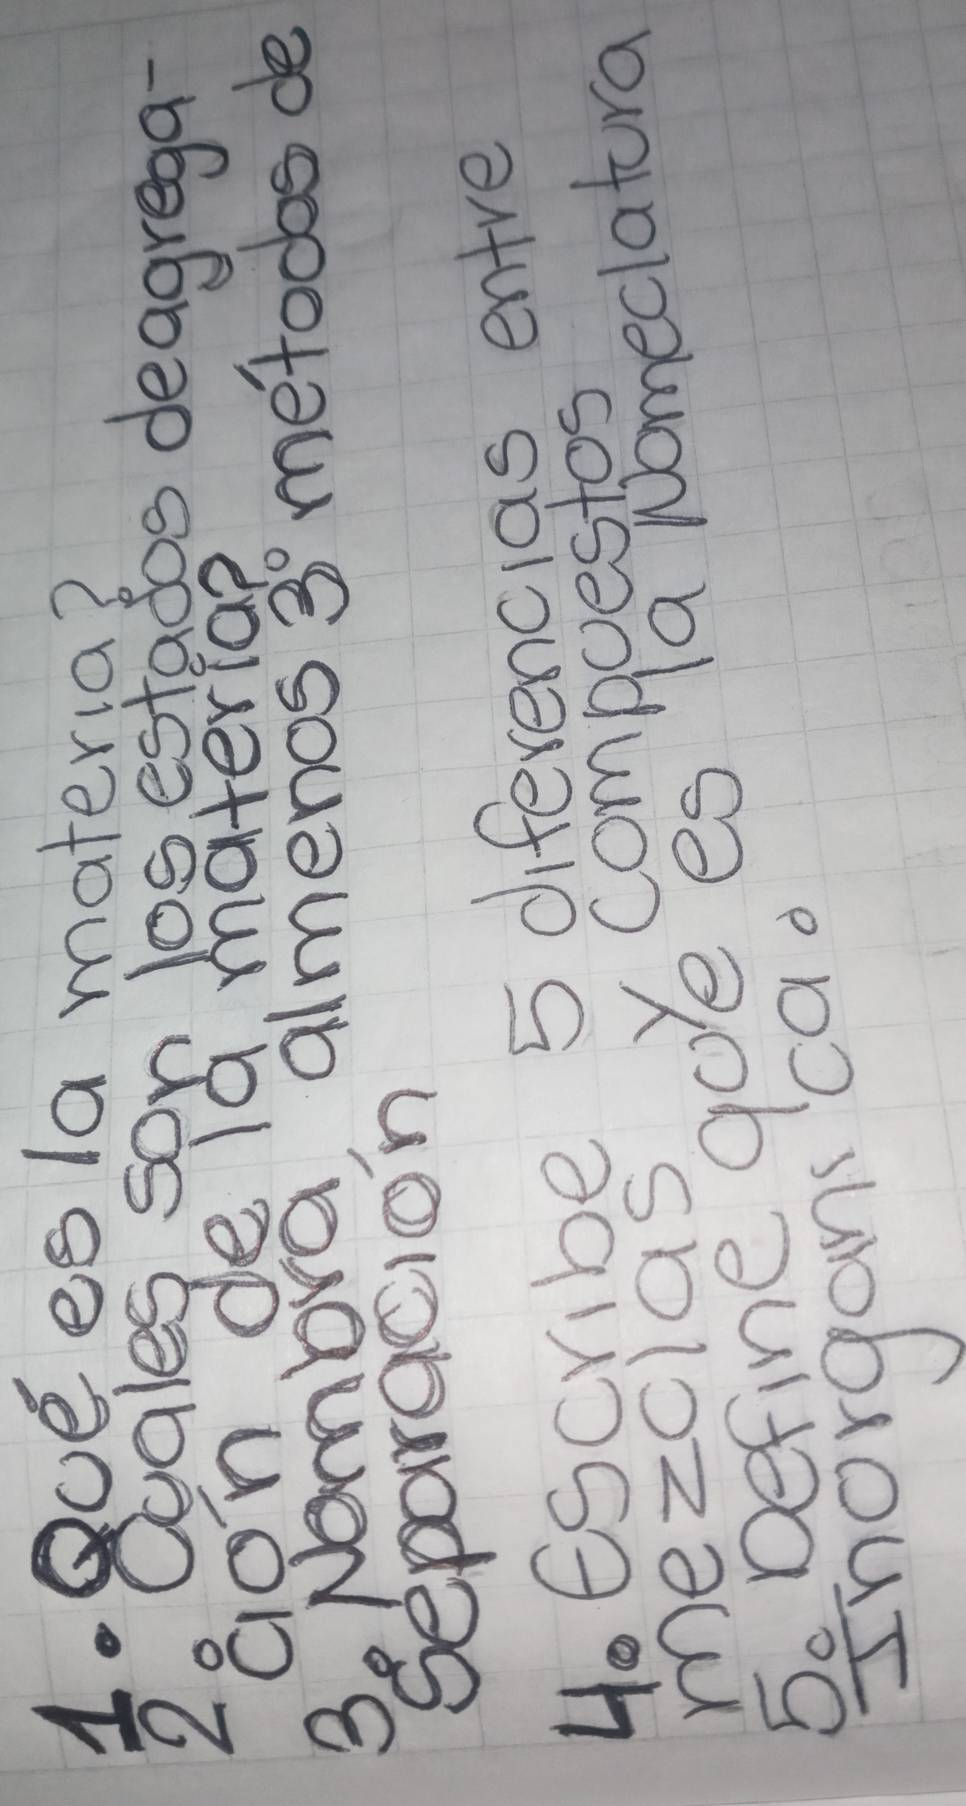 1. Qué es la materia?
2. Cuales son los estados deagrega-
ción de la materia?
3. Nombra almenos 3° métodos de
Separación
4. Escribe 5 diferencias entre
mezclas y compuestos
5. Define que es la Nomeclatura
Inorganica.